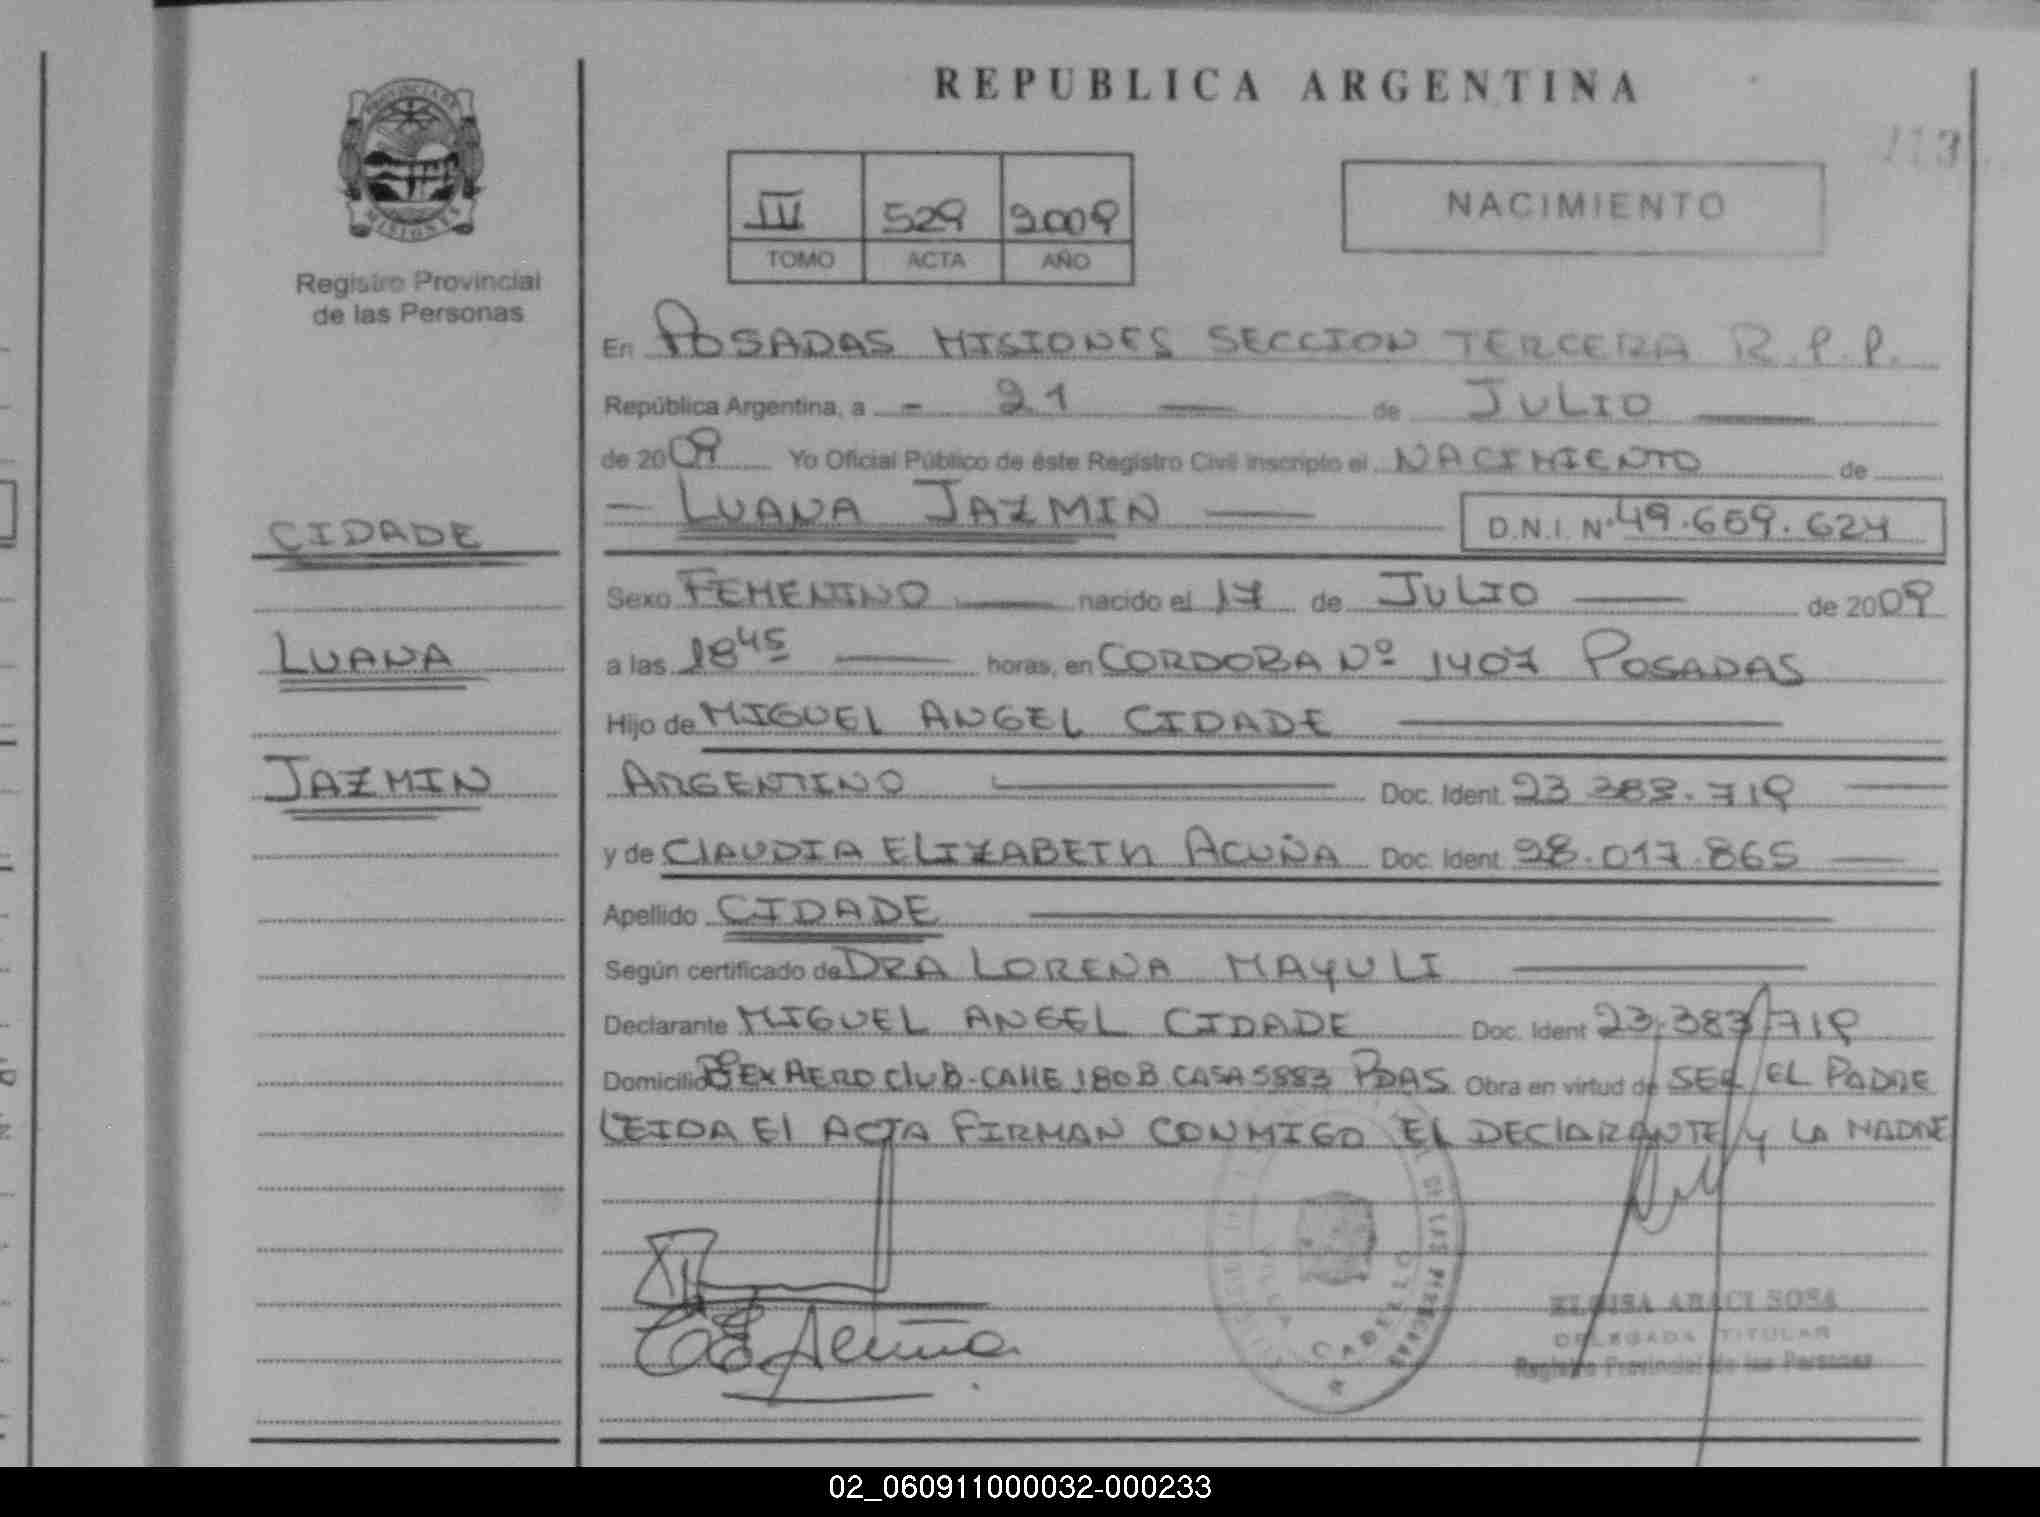 REPUBLICA ARGENTINA
PROVINCIA DE
MISIONES
Registro Provincial
de las Personas
113
III 529 2009
TOMO ACTA AÑO
NACIMIENTO
En POSADAS MISIONES SECCION TERCERA R.P.P.
República Argentina, a - 21 — de JULIO —
de 2009 Yo Oficial Público de éste Registro Civil inscripto el NACIMIENTO de
— LUANA JAZMIN — D.N.I. Nº 49.659.624
CIDADE
LUANA
JAZMIN
Sexo FEMENINO — nacido el 17 de JULIO — de 2009
a las 18 45 — horas, en CORDOBA Nº 1407 POSADAS
Hijo de MIGUEL ANGEL CIDADE —
ARGENTINO — Doc. Ident. 23.383.719 —
y de CLAUDIA ELIZABETH ACUÑA Doc. Ident. 28.017.865 —
Apellido CIDADE —
Según certificado de DRA LORENA MAYULI —
Declarante MIGUEL ANGEL CIDADE Doc. Ident 23.383.719
Domicilio Bº EX AERO CLUB-CALLE 180B CASA 5883 PDAS Obra en virtud de SER EL PADRE
LEIDA El ACTA FIRMAN CONMIGO EL DECLARANTE y LA MADRE
DE LAS PERSONAS
CABEZTO
C E Acuña
ELOISA ARACI SOSA
DELEGADA TITULAR
Registro Provincial de las Personas
02_060911000032-000233